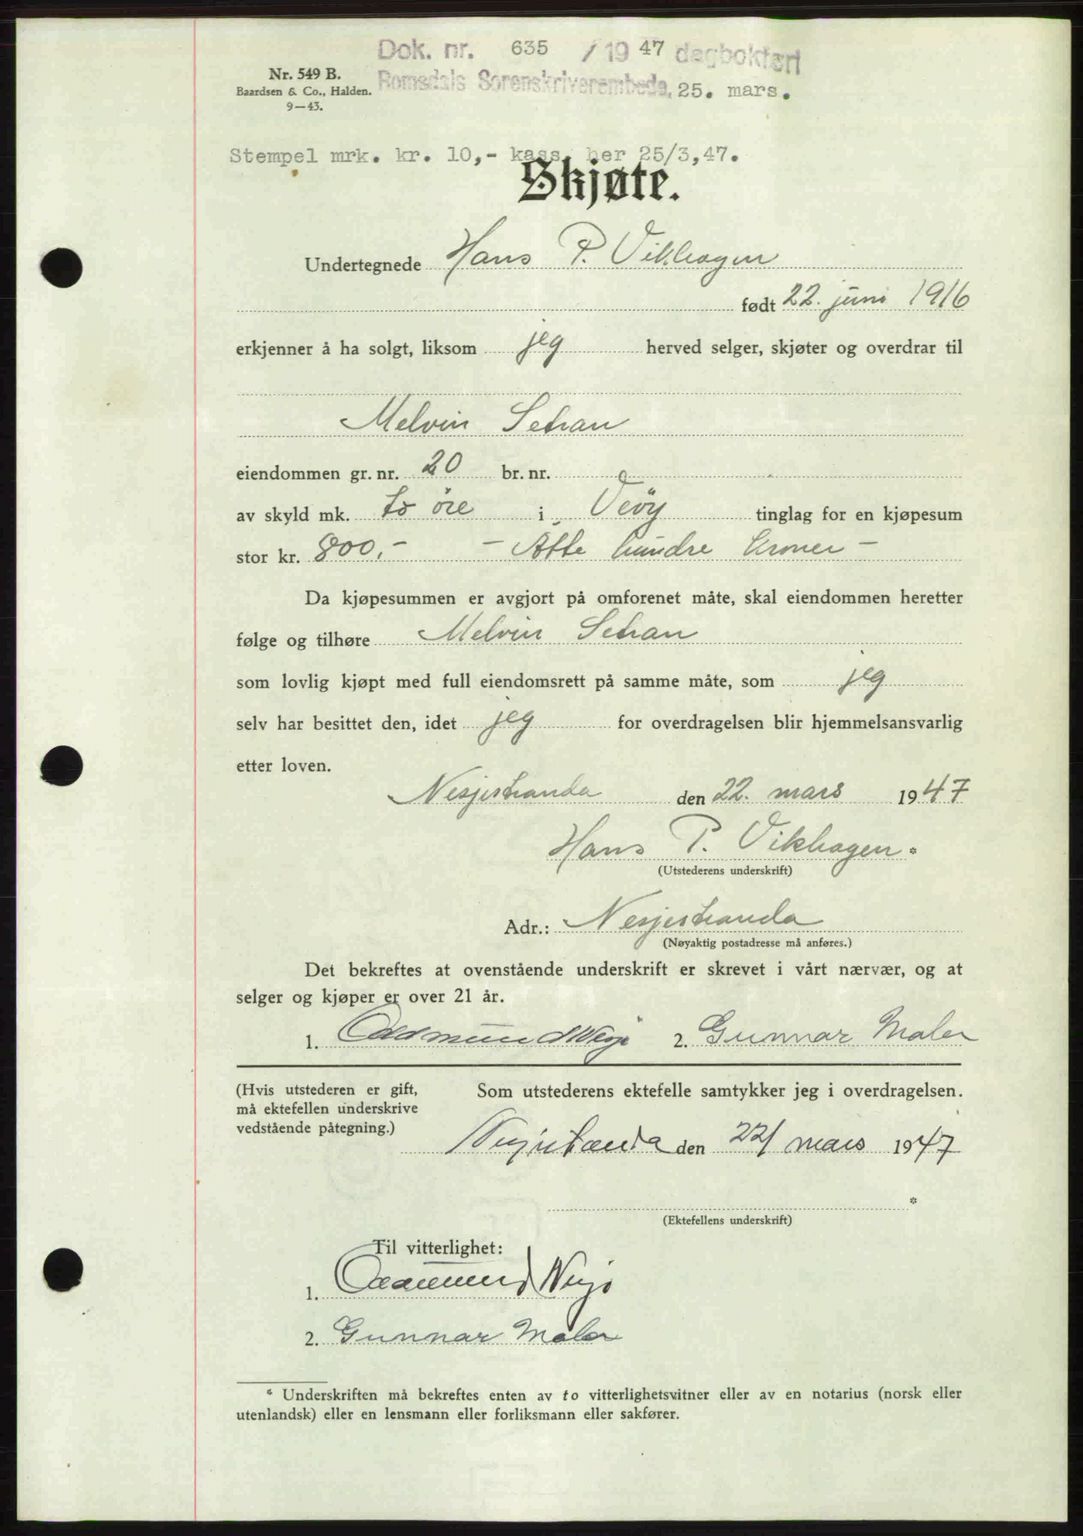 Dok. nr. 635 / 19 47 dagbokført
Nr. 549 B.
Baardsen & Co., Halden.
9—43.
Romsdals Sorenskriverembede, 25. mars.
Stempel mrk. kr. 10,- kass. her 25/3,47.
Skjøte.
Undertegnede Hans P. Vikhagen
født 22. juni 1916
erkjenner å ha solgt, liksom jeg herved selger, skjøter og overdrar til
Melvin Setran
eiendommen gr. nr. 20 br. nr.
av skyld mk. to öre i Veöy tinglag for en kjøpesum
stor kr. 800,- - Åtte hundre kroner -
Da kjøpesummen er avgjort på omforenet måte, skal eiendommen heretter
følge og tilhøre Melvin Setran
som lovlig kjøpt med full eiendomsrett på samme måte, som jeg
selv har besittet den, idet jeg for overdragelsen blir hjemmelsansvarlig
etter loven.
Nesjestranda den 22. mars 1947
Hans P. Vikhagen *
(Utstederens underskrift)
Adr.: Nesjestranda
(Nøyaktig postadresse må anføres.)
Det bekreftes at ovenstående underskrift er skrevet i vårt nærvær, og at
selger og kjøper er over 21 år.
1. Oddmund Nesje 2. Gunnar Malen
(Hvis utstederen er gift,
må ektefellen underskrive
vedstående påtegning.)
Som utstederens ektefelle samtykker jeg i overdragelsen.
Nesjestranda den 22/ mars 1947
*
(Ektefellens underskrift)
Til vitterlighet:
1. Oddmund Nesje
2. Gunnar Malen
* Underskriften må bekreftes enten av to vitterlighetsvitner eller av en notarius (norsk eller
utenlandsk) eller en lensmann eller forliksmann eller sakfører.